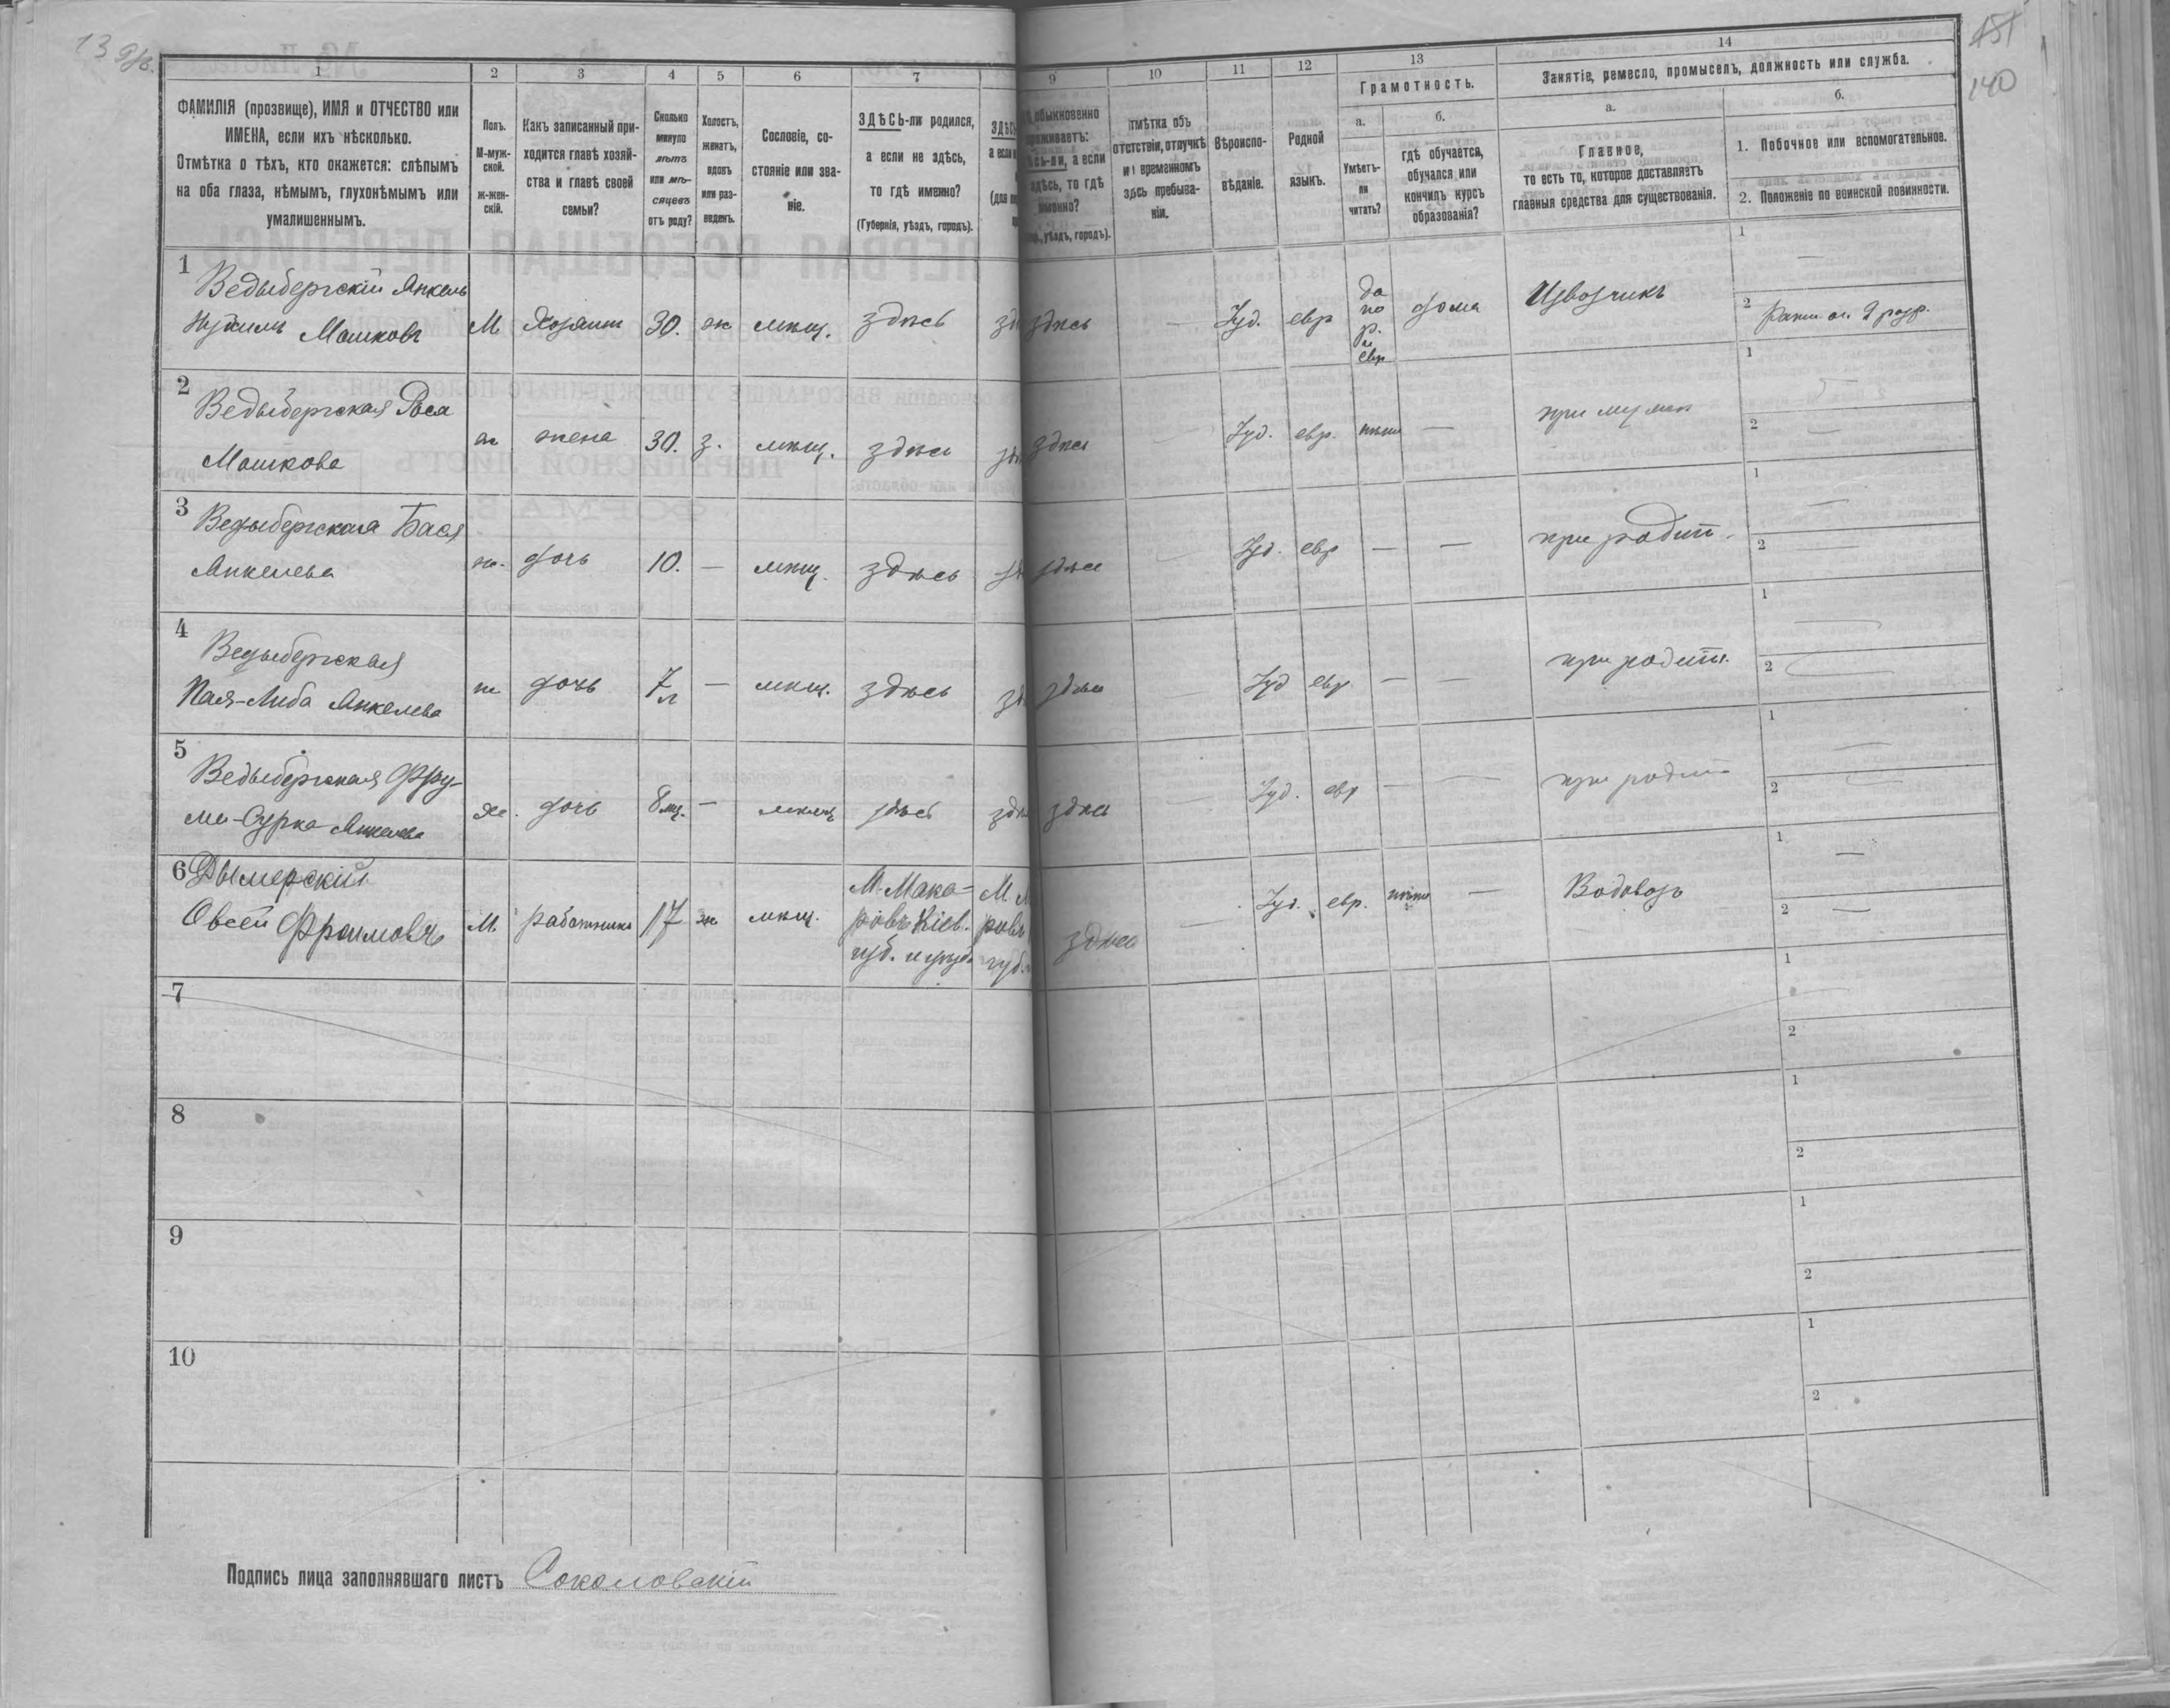 13
151
140
1 2 3 4 5 6 7 9 10 11 12 13 14
ФАМИЛІЯ (прозвище), ИМЯ и ОТЧЕСТВО или
ИМЕНА, если ихъ нѣсколько.
Отмѣтка о тѣхъ, кто окажется: слѣпымъ
на оба глаза, нѣмымъ, глухонѣмымъ или
умалишеннымъ.
Полъ.
М-муж-
ской.
ж-жен-
скій.
Какъ записанный при-
ходится главѣ хозяй-
ства и главѣ своей
семьи?
Сколько
минуло
лѣтъ
или мѣ-
сяцевъ
отъ роду?
Холостъ,
женатъ,
вдовъ
или раз-
веденъ.
Сословіе, со-
стояніе или зва-
ніе.
ЗДѢСЬ-ли родился,
а если не здѣсь,
то гдѣ именно?
(Губернія, уѣздъ, городъ).
ЗДѢСЬ
а если
обыкновенно
проживаетъ:
а если
здѣсь, то гдѣ
именно?
уѣздъ, городъ).
тмѣтка объ
отсутствіи, отлучкѣ
и временномъ
здѣсь пребыва-
ніи.
Вѣроиспо-
вѣданіе.
Родной
языкъ.
Грамотность.
а.
Умѣетъ-
ли
читать?
б.
гдѣ обучается,
обучался или
кончилъ курсъ
образованія?
Занятіе, ремесло, промыселъ, должность или служба.
а.
Главное,
то есть то, которое доставляетъ
главныя средства для существованія.
б.
1. Побочное или вспомогательное.
2. Положеніе по воинской повинности.
1
Ведыбергскій Янкель
Нухимъ Машковъ М Хозяинъ 30. ж мѣщ. здѣсь зд здѣсь — Іуд. евр да по р. и евр дома Извозчикъ 1 — 2
2
Ведыбергская Рося
Машкова ж жена 30. з. мѣщ. здѣсь здѣсь — Іуд. евр. — при мужѣ 1 — 2 —
3
Ведыбергская Бася
Янкелева ж. дочь 10. — мѣщ. здѣсь здѣсь — Іуд. евр — — при родит. 1 — 2 —
4
Ведыбергская
Пая-Либа Янкелева ж дочь 7 л — мѣщ. здѣсь зд здѣсь Іуд евр — — при родит. 1 — 2 —
5
Ведыбергская Фру-
ма-Сурка Янкелева ж. дочь 8 мѣ. — мѣщ здѣсь здѣ здѣсь — Іуд. евр — — при родит 1 — 2 —
6 Дымерскій
Овсей Фроимовъ М работникъ 17 ж мѣщ. М. Мака-
ровъ Кіев.
губ. и уѣзда
М. М
ровъ
губ.
здѣсь — Іуд. евр. — Водовозъ 1 — 2 —
7 1 2
8 1 2
9 1 2
10 1 2
Подпись лица заполнявшаго листъ Соколовскій